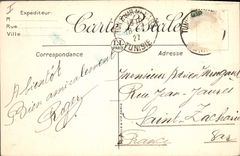 Expéditeur:
M
Rue
Ville
Carte Postale
TUNISIE
Correspondance
Adresse
A bientôt
Bien amicalement
Roger
Monsieur
Rue Jean-Jaurès
Saint-Zacharie
Var
France